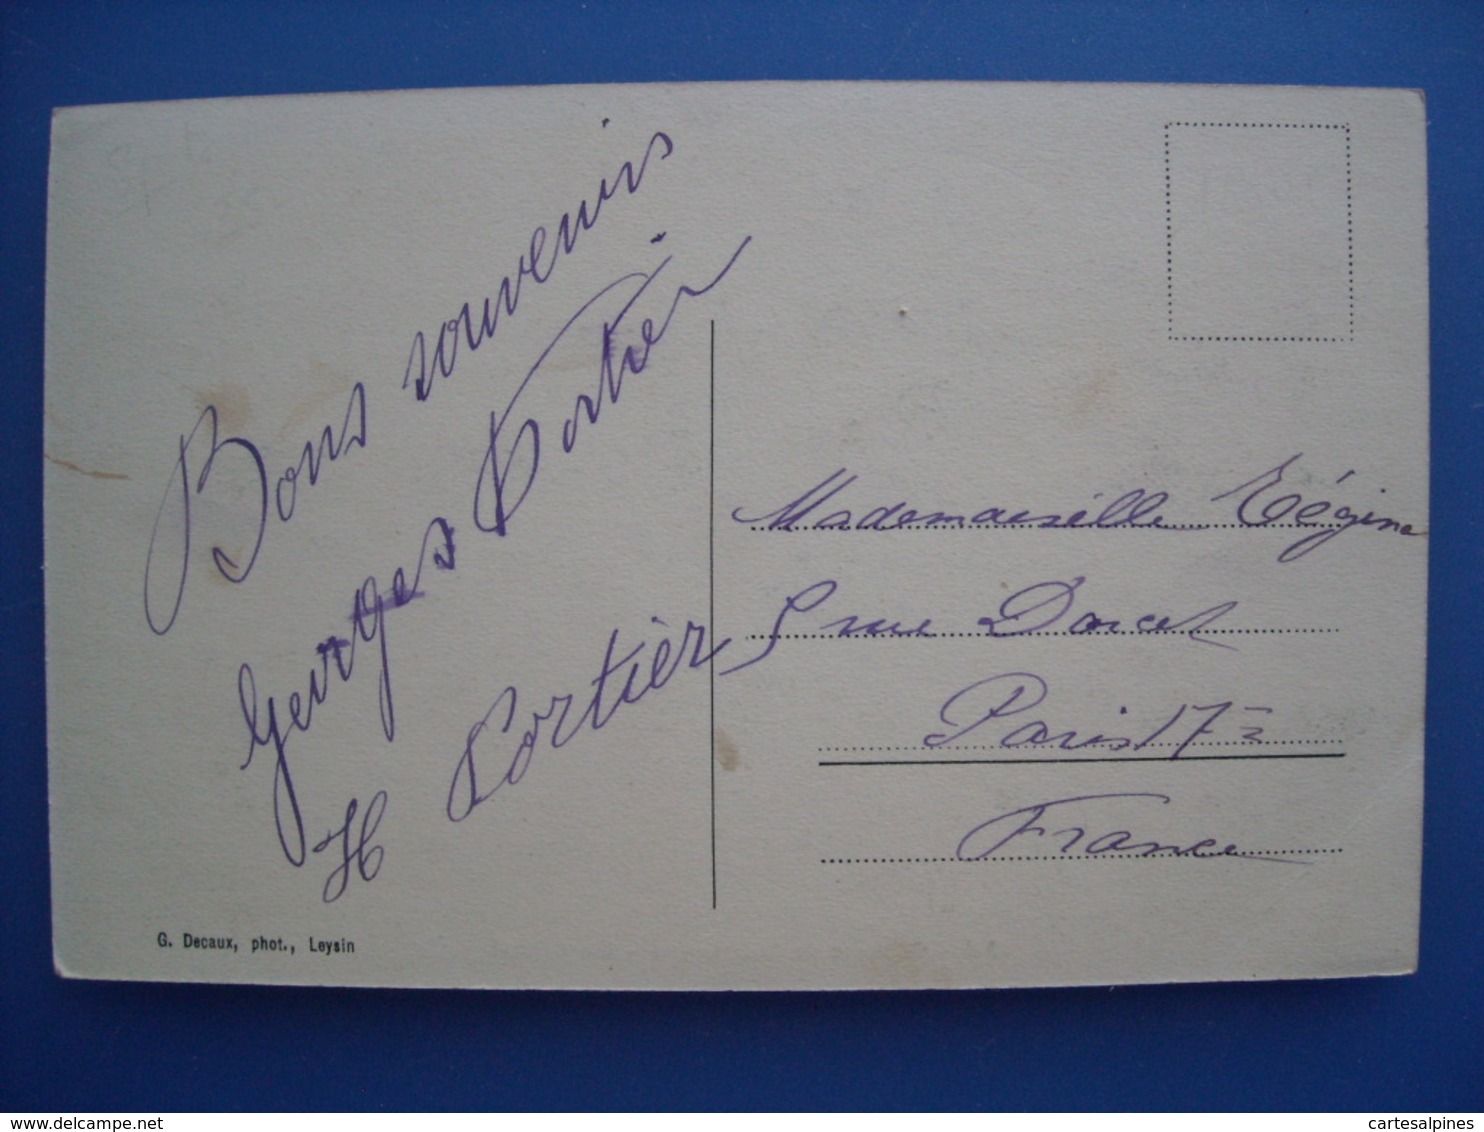 Bons souvenirs
Georges Cortier
H Cortier
Mademoiselle Régine
5 rue Darcet
Paris 17e
France
G. Decaux, phot., Leysin
www.delcampe.net
cartesalpines